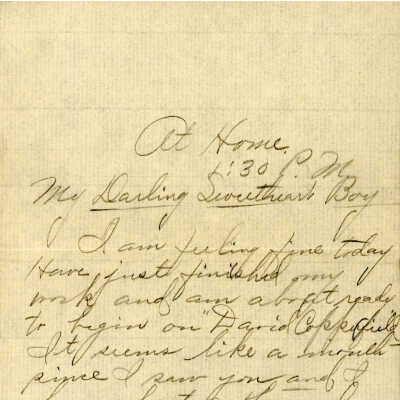 At Home.
1:30 P.M.
My Darling Sweetheart Boy
I am feeling fine today
Have just finished my
work and am about ready
to begin on "David Copperfield"
It seems like a month
since I saw you and I